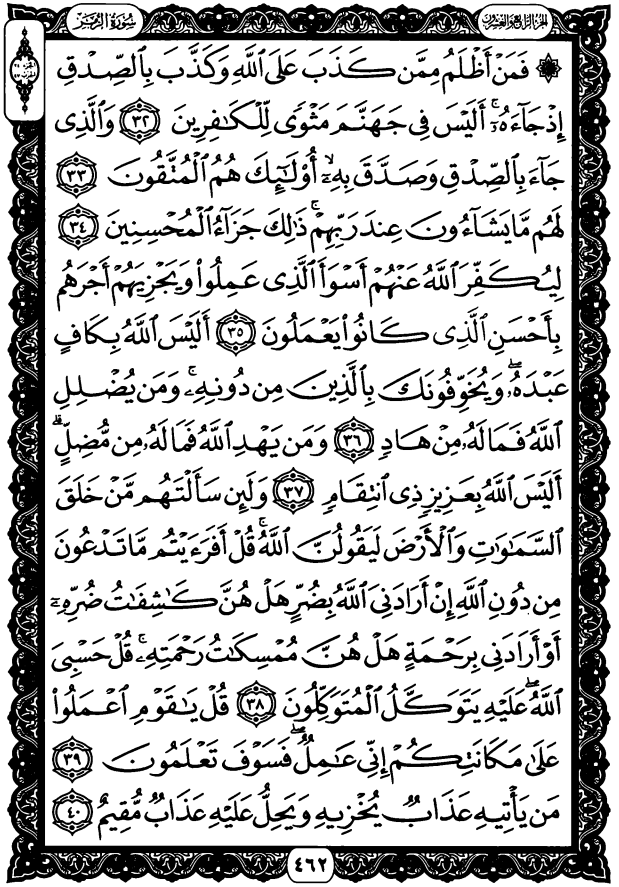 الجزء الرابع والعشرون
سورة الزمر
فَمَنْ أَظْلَمُ مِمَّن كَذَبَ عَلَى ٱللَّهِ وَكَذَّبَ بِٱلصِّدْقِ
إِذْ جَآءَهُۥٓ ۚ أَلَيْسَ فِى جَهَنَّمَ مَثْوًى لِّلْكَـٰفِرِينَ ٣٢ وَٱلَّذِى
جَآءَ بِٱلصِّدْقِ وَصَدَّقَ بِهِۦٓ ۙ أُو۟لَـٰٓئِكَ هُمُ ٱلْمُتَّقُونَ ٣٣
لَهُم مَّا يَشَآءُونَ عِندَ رَبِّهِمْ ۚ ذَٰلِكَ جَزَآءُ ٱلْمُحْسِنِينَ ٣٤
لِيُكَفِّرَ ٱللَّهُ عَنْهُمْ أَسْوَأَ ٱلَّذِى عَمِلُوا۟ وَيَجْزِيَهُمْ أَجْرَهُم
بِأَحْسَنِ ٱلَّذِى كَانُوا۟ يَعْمَلُونَ ٣٥ أَلَيْسَ ٱللَّهُ بِكَافٍ
عَبْدَهُۥ ۖ وَيُخَوِّفُونَكَ بِٱلَّذِينَ مِن دُونِهِۦ ۚ وَمَن يُضْلِلِ
ٱللَّهُ فَمَا لَهُۥ مِنْ هَادٍ ٣٦ وَمَن يَهْدِ ٱللَّهُ فَمَا لَهُۥ مِن مُّضِلٍّ ۗ
أَلَيْسَ ٱللَّهُ بِعَزِيزٍ ذِى ٱنتِقَامٍ ٣٧ وَلَئِن سَأَلْتَهُم مَّنْ خَلَقَ
ٱلسَّمَـٰوَٰتِ وَٱلْأَرْضَ لَيَقُولُنَّ ٱللَّهُ ۚ قُلْ أَفَرَءَيْتُم مَّا تَدْعُونَ
مِن دُونِ ٱللَّهِ إِنْ أَرَادَنِىَ ٱللَّهُ بِضُرٍّ هَلْ هُنَّ كَـٰشِفَـٰتُ ضُرِّهِۦٓ
أَوْ أَرَادَنِى بِرَحْمَةٍ هَلْ هُنَّ مُمْسِكَـٰتُ رَحْمَتِهِۦ ۚ قُلْ حَسْبِىَ
ٱللَّهُ ۖ عَلَيْهِ يَتَوَكَّلُ ٱلْمُتَوَكِّلُونَ ٣٨ قُلْ يَـٰقَوْمِ ٱعْمَلُوا۟
عَلَىٰ مَكَانَتِكُمْ إِنِّى عَـٰمِلٌ ۖ فَسَوْفَ تَعْلَمُونَ ٣٩
مَن يَأْتِيهِ عَذَابٌ يُخْزِيهِ وَيَحِلُّ عَلَيْهِ عَذَابٌ مُّقِيمٌ ٤٠
٤٦٢